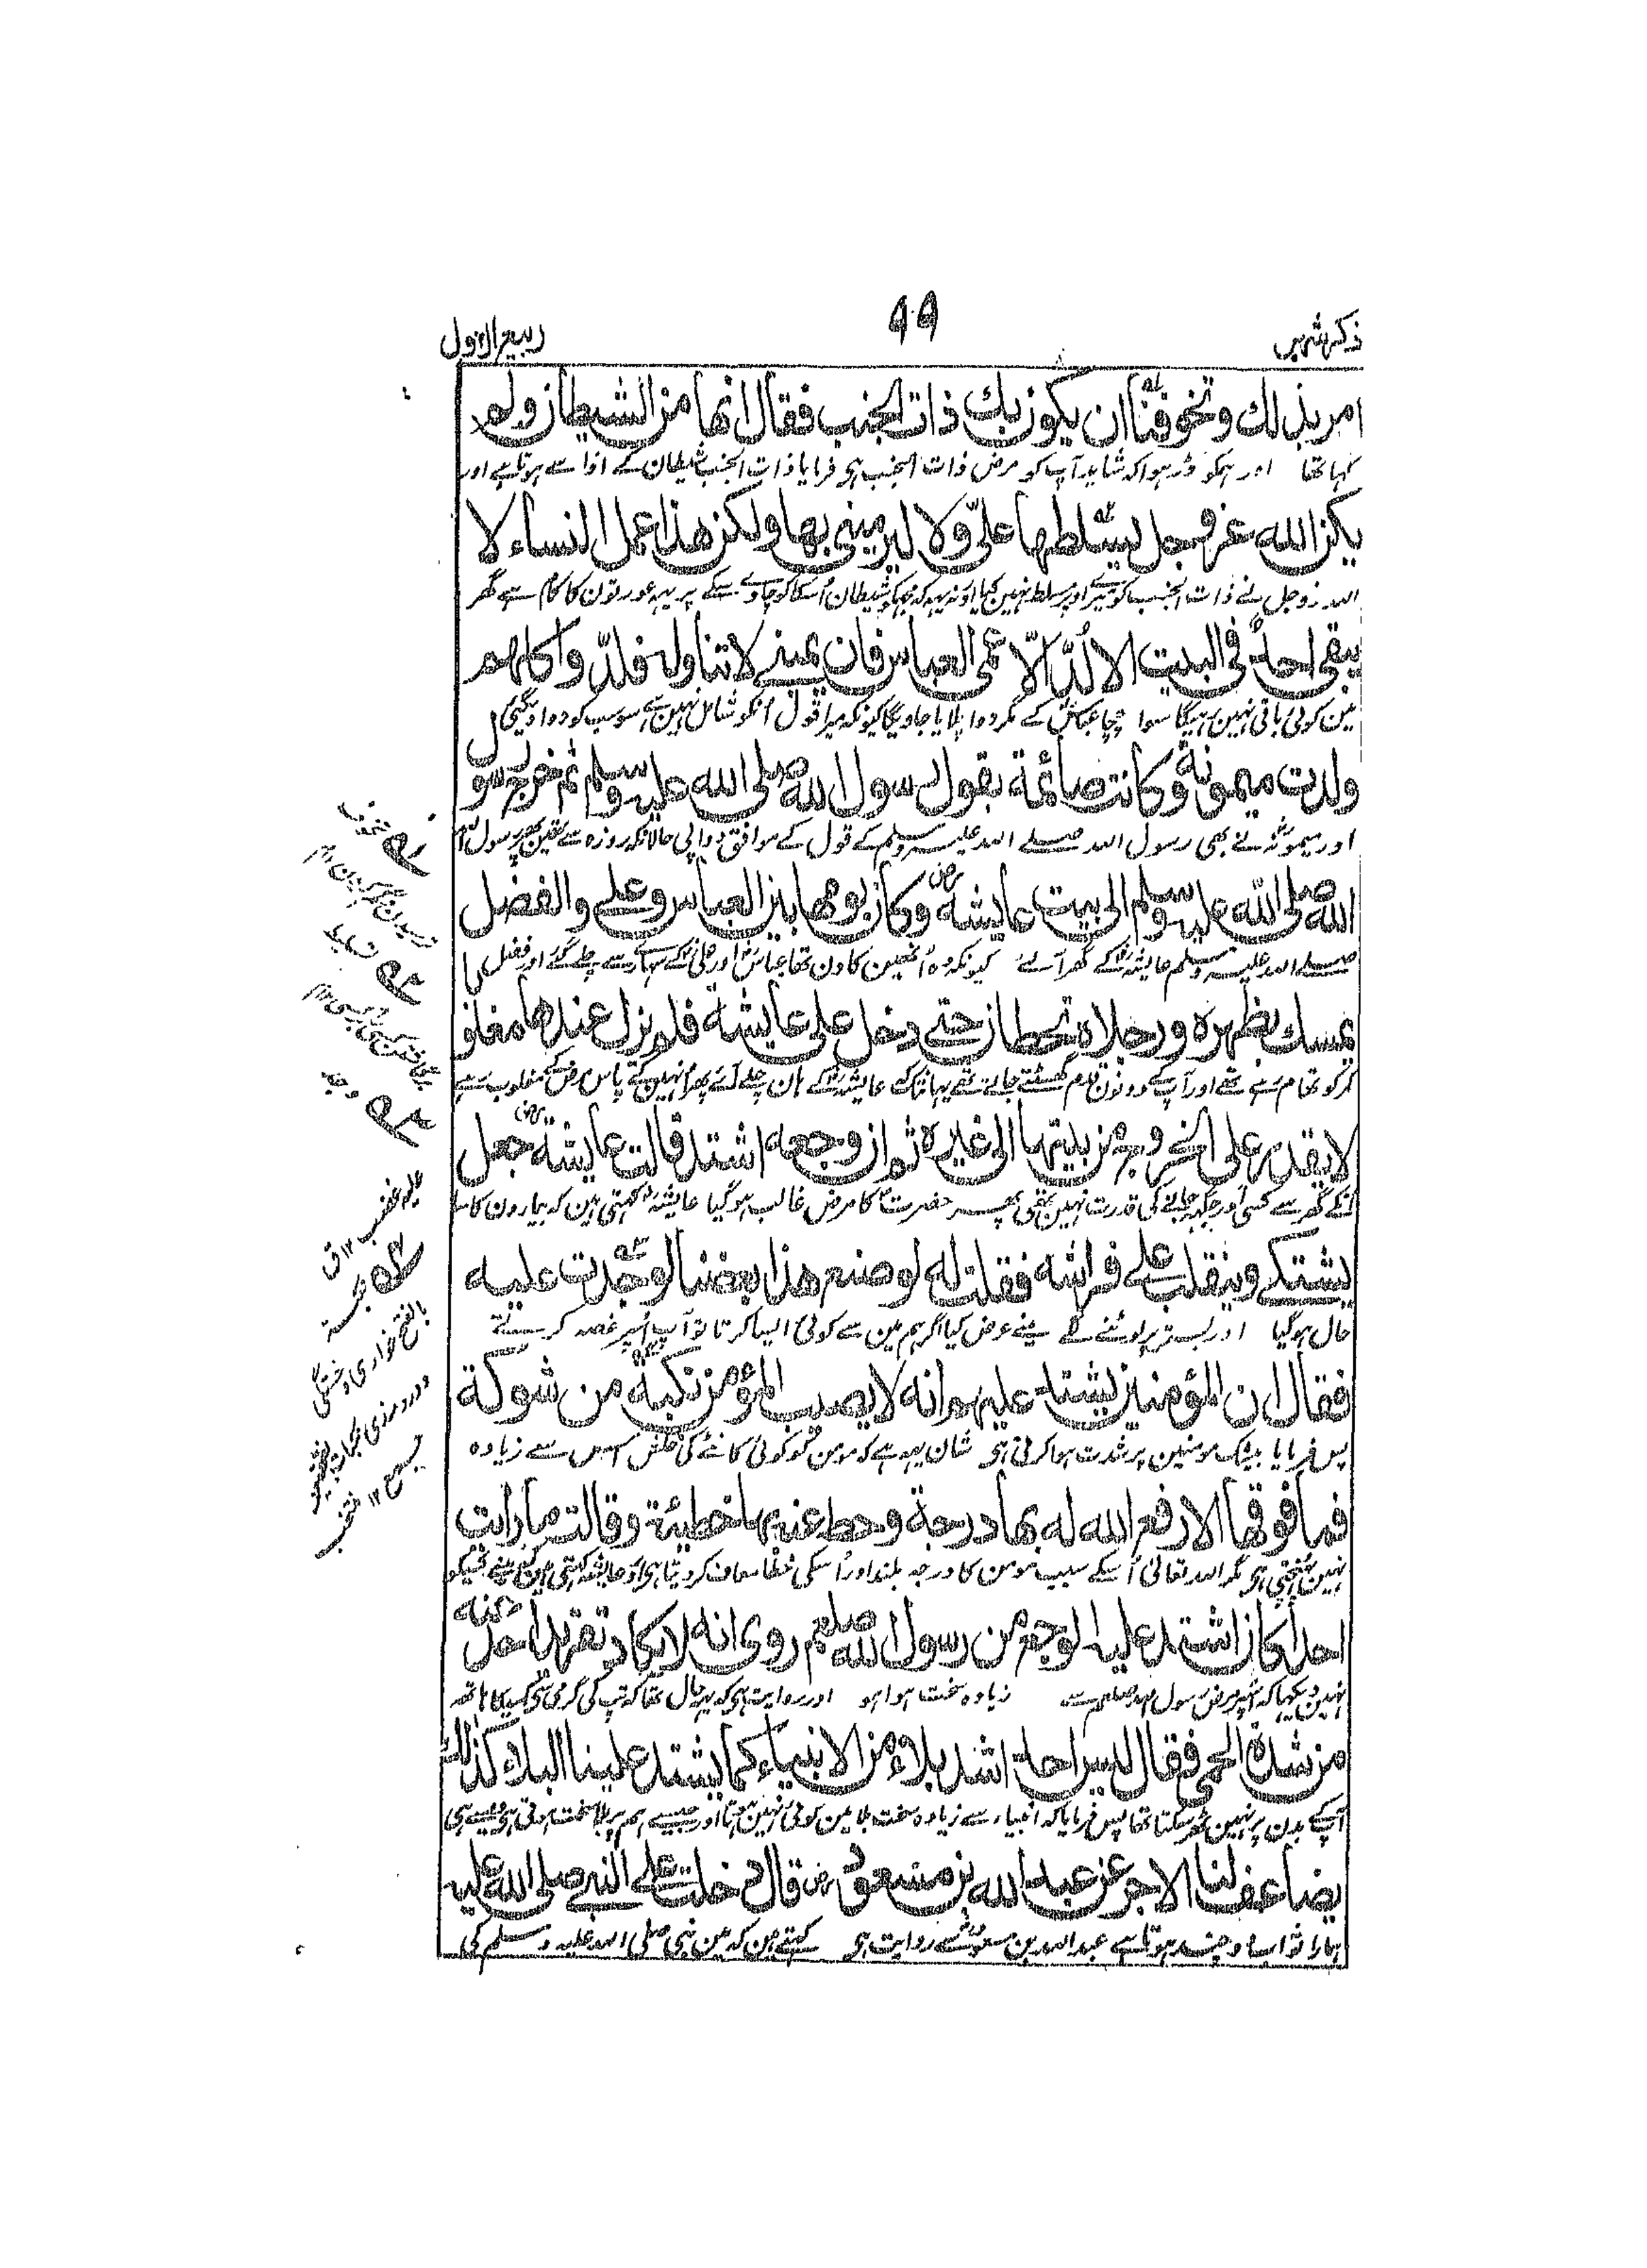 ذکر شہر ۹۹ ربیع الاول
امر بذلك وتخوفنا ان يكون بك ذات الجنب فقال انها من الشيطان ولم
کہا تھا اور ہمکو ڈر ہوا کہ شاید آپ کو مرض ذات الجنب ہو فرمایا ذات الجنب شیطان کے اذا سے ہوتا ہے اور
يكن الله عز وجل ليسلطها علىّ ولا ليرمينى بها ولكن هذا عمل النساء لا
اللہ عزوجل نے ذات الجنب کو میرے اوپر مسلط نہین کیا اور نہ یہہ کہ مجہکو شیطان پر یہہ عورتون کا کام ہے گھر
يبقى احد فى البيت الا لُدّ الّا عمى العباس فان يمينے لا تناوله فلدّوا كلهم
مین کوئی باقی نہین رہیگا سوا چچا عباس کے مگر دوا پلایا جاویگا کیونکہ میرا قول انکو شامل نہین ہے سو سب کو دوا دیگئی
ولدت ميمونة وكانت صائمة بقول رسول الله صلى الله عليه وسلم ثم خرج رسول
اور میمونہ نے بھی رسول اللہ صلے اللہ علیہ وسلم کے قول کے موافق دوا پی حالانکہ روزہ سے تھین پھر رسول اللہ
الله صلى الله عليه وسلم الى بيت عايشة رض وكان يومها بين العباس وعلى والفضل
صلے اللہ علیہ وسلم عایشہ کے گھر آئے کیونکہ وہ اُنھین کا دن تھا عباس اور علی کے سہارے سے چلے گئے اور فضل
يمسك بظهره ورجلاه تخطان حتى دخل على عايشة فلم يزل عندها مغلوبا
کمر کو تھام رہے تھے اور آپ کے دونون قدم گھسٹتے جاتے تھے یہانتک کہ عایشہ کے ہان چلے آئے پھر اُنہین کے پاس مرض کے مغلوب رہے
لا يقدر على الخروج من بيتها الى غيره ثم ان وجعه اشتد قالت عايشة رض جعل
انکے گھر سے کسی اور جگہہ جانے کی قدرت نہین تھی پھر حضرت کا مرض غالب ہو گیا عایشہ کہتی ہین کہ بیمارون کا سا
يشتكى ويتقلب على فراشه فقلت له لو صنع هذا بعضنا لوجدت عليه
حال ہو گیا اور بستر پر لوٹنے لگے مینے عرض کیا اگر ہم مین سے کوئی ایسا کرتا تو آپ اُسپر غصہ کرتے
فقال ان المؤمنين يشتد عليهم انه لا يصيب المؤمن نكبة من شوكة
پس فرمایا بیشک مومنین پر شدت ہوا کرتی ہی شان یہہ ہے کہ مومن کو کوئی کانٹے کی خلش اس سے زیادہ
فما فوقها الا رفع الله له بها درجة وحط عنه بها خطيئة وقالت ما رايت
نہین پہنچتی ہی مگر اللہ تعالیٰ اُسکے سبب مومن کا درجہ بلند اور اُسکی خطا معاف کر دیتا ہی اور عایشہ کہتی ہین کہ مینے کسیکو
احدا كان اشتد عليه الوجع من رسول الله صلعم روى انه لا يكاد تقر يد احد
نہین دیکہا کہ اُسپر مرض رسول اللہ صلعم سے زیادہ سخت ہوا ہو اور روایت ہی کہ یہہ حال تھا کہ تپ کی گرمی سے کسیکا ہاتھہ
من شدة الحمى فقال ليس احد اشد بلاء من الانبياء كما يشتد علينا البلاء كذلك
آپکے بدن پر نہین ٹھہر سکتا تھا پس فرمایا کہ انبیاء سے زیادہ سخت بلا مین کوئی نہین ہوتا اور جیسے ہم پر بلا سخت ہوتی ہی ویسے ہی
يضاعف لنا الاجر عن عبد الله بن مسعود رض قال دخلت على النبى صلى الله عليه
ہمارا ثواب دو چند ہوتا ہے عبد اللہ بن مسعود سے روایت ہی کہتے ہین کہ مین نبی صلی اللہ علیہ وسلم کی
تخوف
ترسیدن
تسلیط
وجد
علیہ غضب ۱۲ ق
نکبۃ
بالفتح خواری و خستگی
۱۲ منتخب